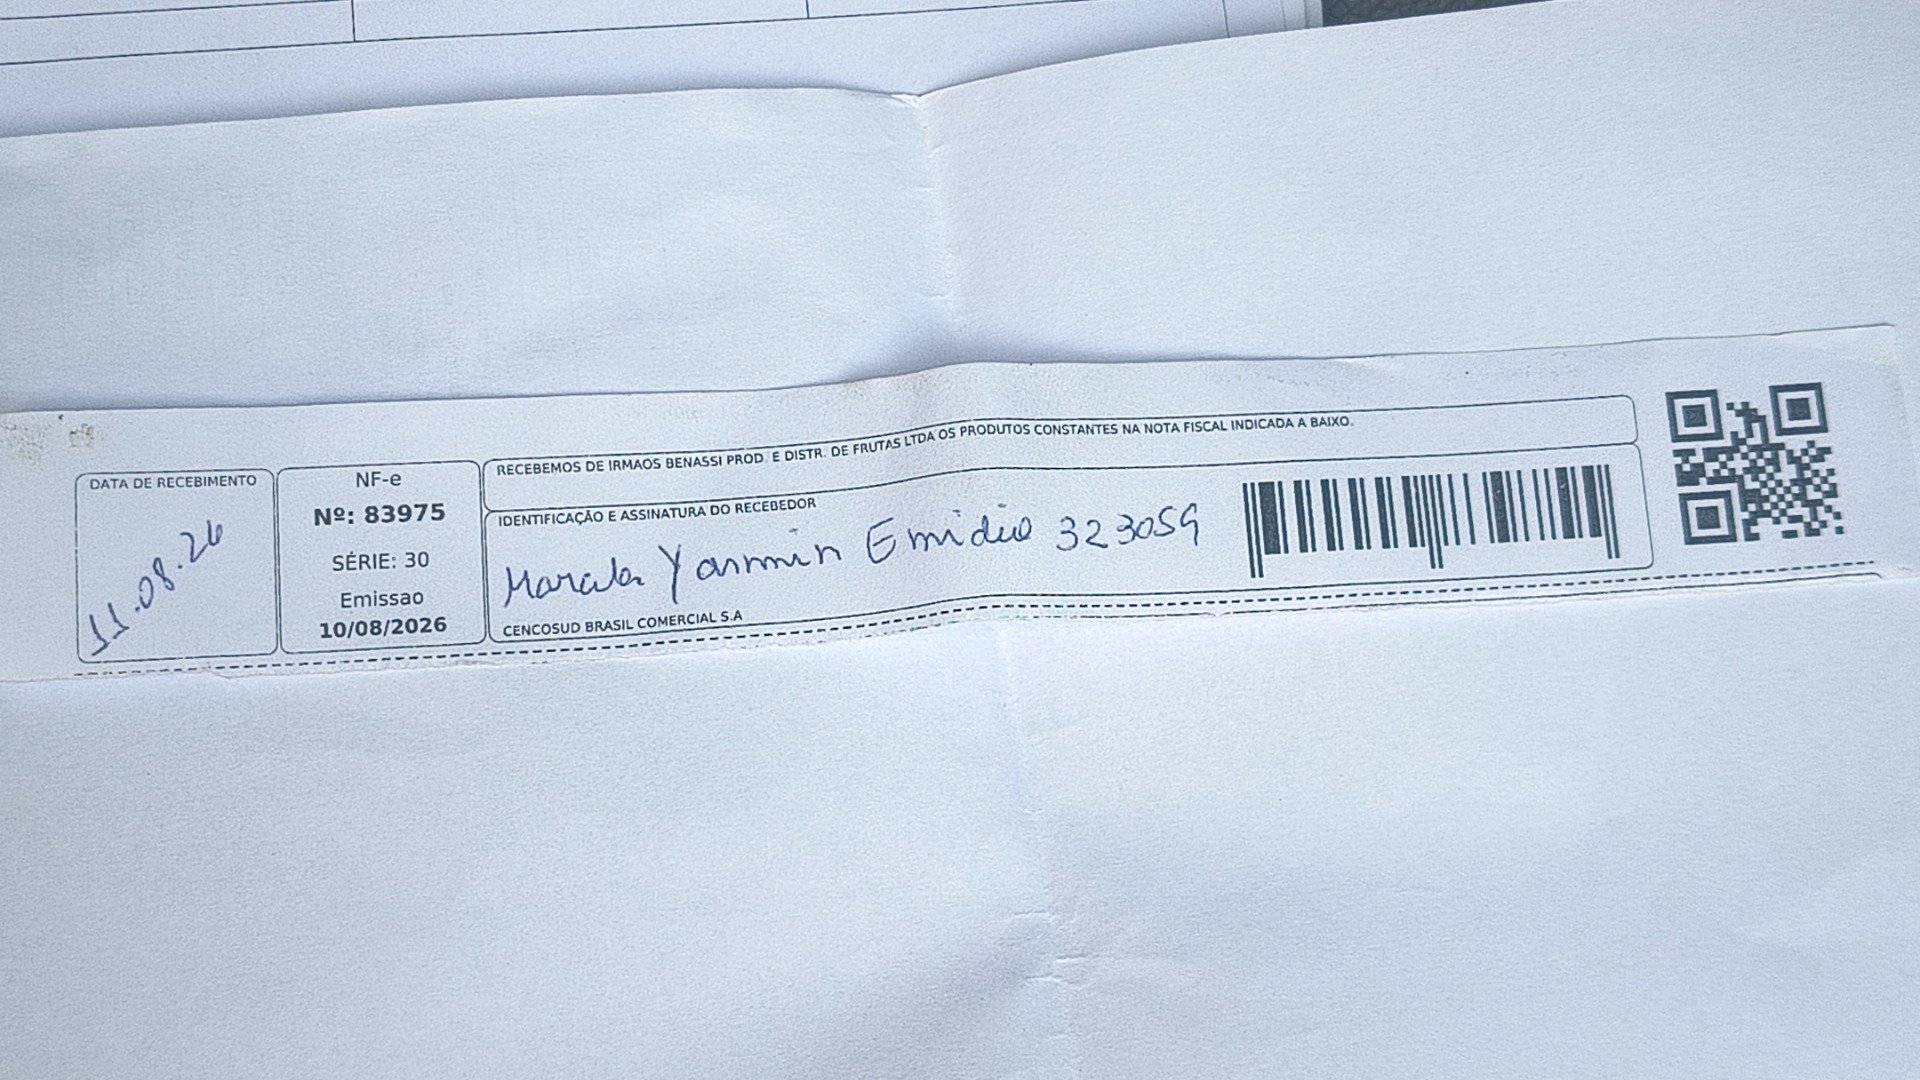 RECEBEMOS DE IRMAOS BENASSI PROD. E DISTR. DE FRUTAS LTDA OS PRODUTOS CONSTANTES NA NOTA FISCAL INDICADA A BAIXO.
DATA DE RECEBIMENTO
11.08.26
NF-e
Nº: 83975
SÉRIE: 30
Emissao
10/08/2026
IDENTIFICAÇÃO E ASSINATURA DO RECEBEDOR
Yasmin Emidio 323059
CENCOSUD BRASIL COMERCIAL S.A